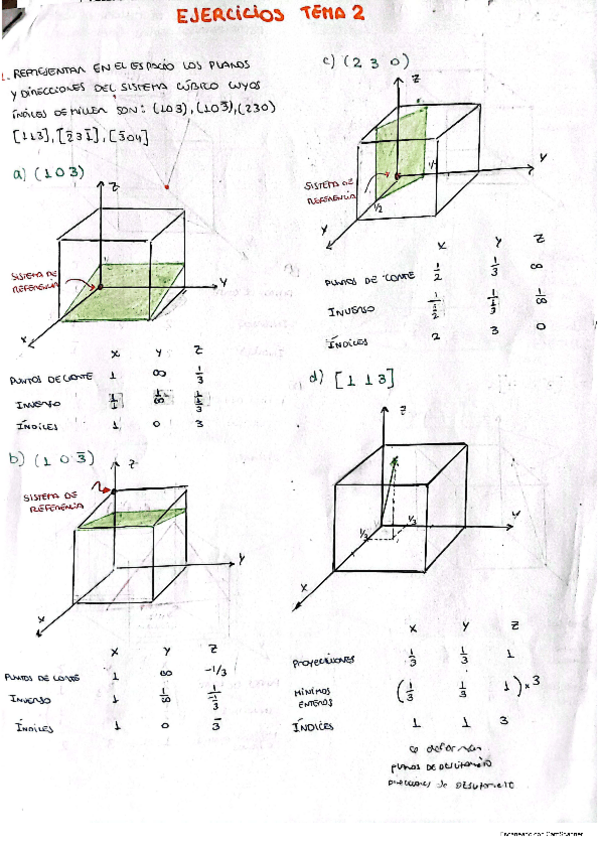 EJERCICIOS TEMA 2
1. REPRESENTAR EN EL ESPACIO LOS PLANOS
Y DIRECCIONES DEL SISTEMA CÚBICO CUYOS
ÍNDICES DE MILLER SON: (103), (103̄), (230)
[113], [2̄31̄], [3̄04]
a) (103)
Z
SISTEMA DE
REFERENCIA
Y
X
X Y Z
PUNTOS DE CORTE 1 ∞ 1/3
INVERSO 1/1 1/∞ 1/(1/3)
ÍNDICES 1 0 3
b) (1 0 3̄)
Z
SISTEMA DE
REFERENCIA
Y
X
X Y Z
PUNTOS DE CORTE 1 ∞ -1/3
INVERSO 1 1/∞ 1/(-1/3)
ÍNDICES 1 0 3̄
c) (2 3 0)
Z
Y
SISTEMA DE
REFERENCIA
1/2
X
X Y Z
PUNTOS DE CORTE 1/2 1/3 ∞
INVERSO 1/(1/2) 1/(1/3) 1/∞
ÍNDICES 2 3 0
d) [1 1 3]
Z
1/3 1/3
Y
X
X Y Z
PROYECCIONES 1/3 1/3 1
MÍNIMOS
ENTEROS (1/3 1/3 1) × 3
ÍNDICES 1 1 3
se deforman
planos de deslizamiento
direcciones de deslizamiento
Escaneado con CamScanner